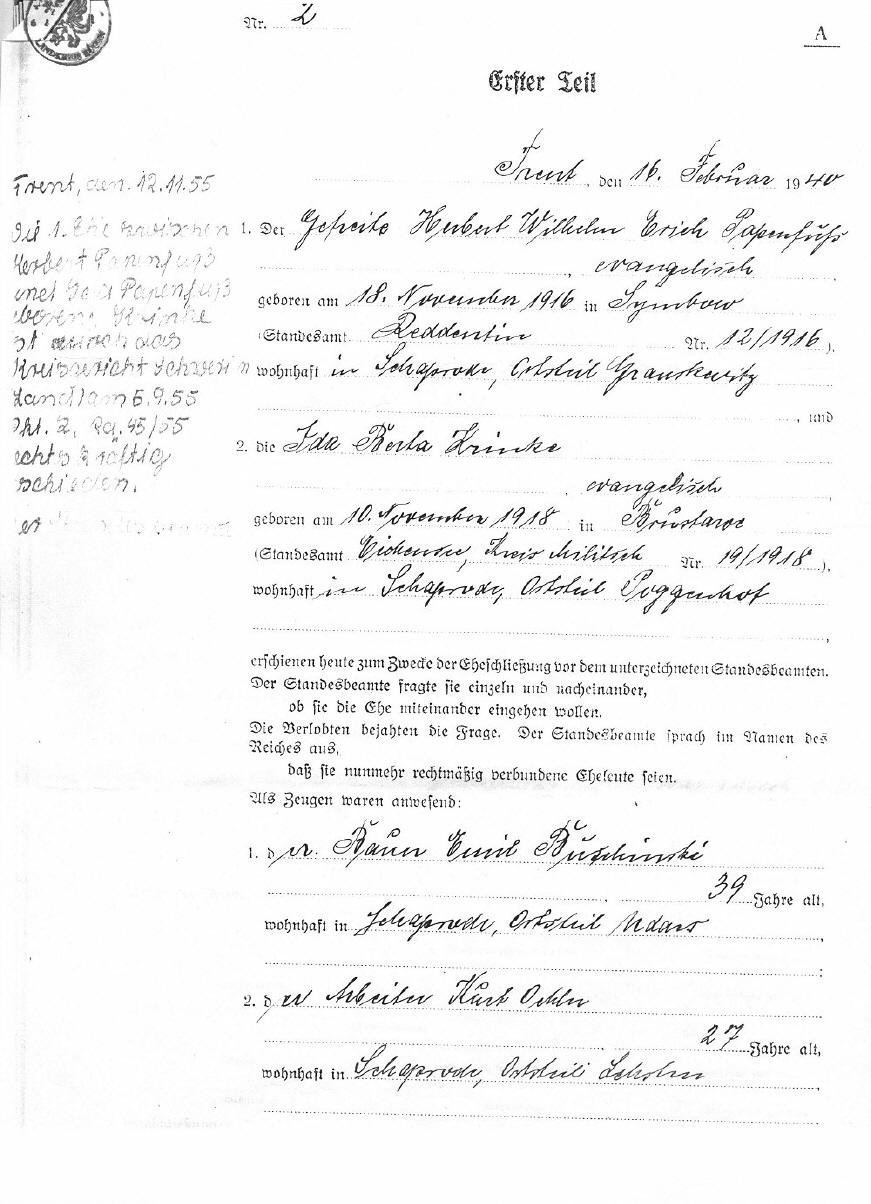 LANDKREIS RÜGEN
Nr. 2
A
Erster Teil
Trent, den 16. Februar 1940
1. Der Gefreite Herbert Wilhelm Erich Papenfuß
, evangelisch
geboren am 18. November 1916 in Symbow
(Standesamt Reddentin Nr. 12/1916),
wohnhaft in Schaprode, Ortsteil Granskevitz
, und
2. die Ida Berta Krinke
, evangelisch
geboren am 10. November 1918 in
(Standesamt Eichensee, Kreis Militsch Nr. 19/1918),
wohnhaft in Schaprode, Ortsteil Poggenhof
,
erschienen heute zum Zwecke der Eheschließung vor dem unterzeichneten Standesbeamten.
Der Standesbeamte fragte sie einzeln und nacheinander,
ob sie die Ehe miteinander eingehen wollen.
Die Verlobten bejahten die Frage. Der Standesbeamte sprach im Namen des
Reiches aus,
daß sie nunmehr rechtmäßig verbundene Eheleute seien.
Als Zeugen waren anwesend:
1. der Bauer Emil Buschinski
, 39 Jahre alt,
wohnhaft in Schaprode, Ortsteil Udars,
;
2. der Arbeiter Kurt
, 27 Jahre alt,
wohnhaft in Schaprode, Ortsteil
Trent, den 12.11.55
Die 1. Ehe zwischen
Herbert Papenfuß
und Ida Papenfuß
borene Krinke
st durch das
Kreisgericht Schwerin
Land) am 6.9.55
Akt. Z. Ra. 45/55
echtskräftig
schieden.